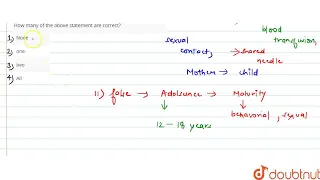 How many of the above statement are correct?
1) None
2) one
3) two
4) All
sexual contact, → shared needle
blood transfusion,
Mother → child
11) false → Adolescence → Maturity
12 - 18 years
behavioral, sexual
doubtnut